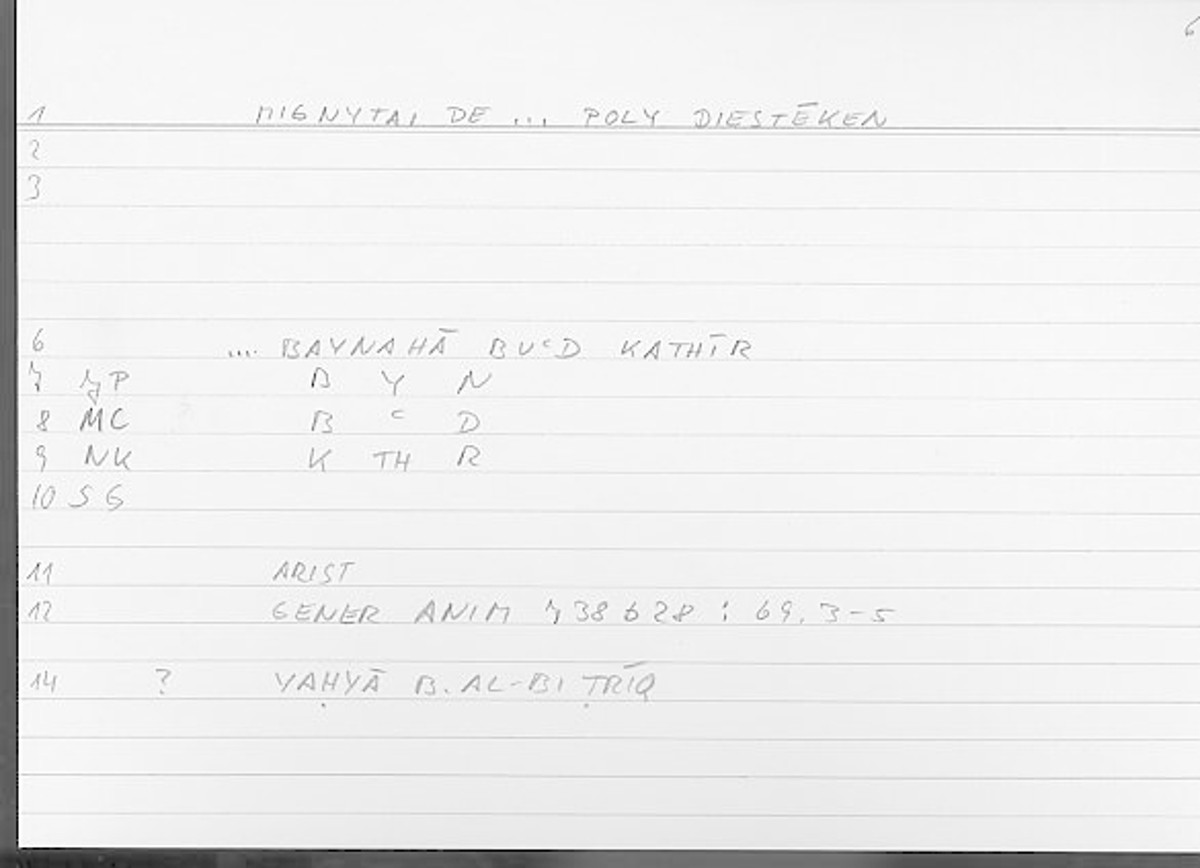 6
1 MIGNYTAI DE ... POLY DIESTĒKEN
2
3
6 .... BAYNAHĀ BUᶜD KATHĪR
7 JP B Y N
8 MC B ᶜ D
9 NK K TH R
10 SG
11 ARIST
12 GENER ANIM 738 b 28 : 69.3-5
14 ? YAḤYĀ B. AL-BIṬRĪQ